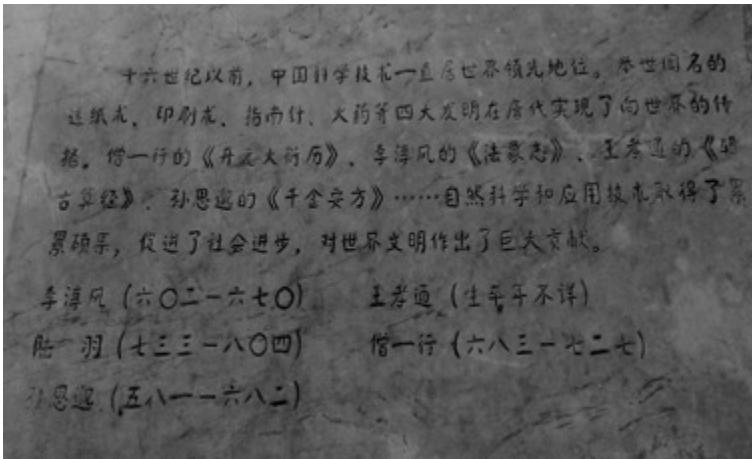 十六世纪以前，中国科学技术一直居世界领先地位。举世闻名的
造纸术、印刷术、指南针、火药等四大发明在唐代实现了向世界的传
播。僧一行的《开元大衍历》、李淳风的《法象志》、王孝通的《缉
古算经》、孙思邈的《千金要方》……自然科学和应用技术取得了累
累硕果，促进了社会进步，对世界文明作出了巨大贡献。
李淳风（六〇二－六七〇） 王孝通（生卒年不详）
陆 羽（七三三－八〇四） 僧一行（六八三－七二七）
孙思邈（五八一－六八二）